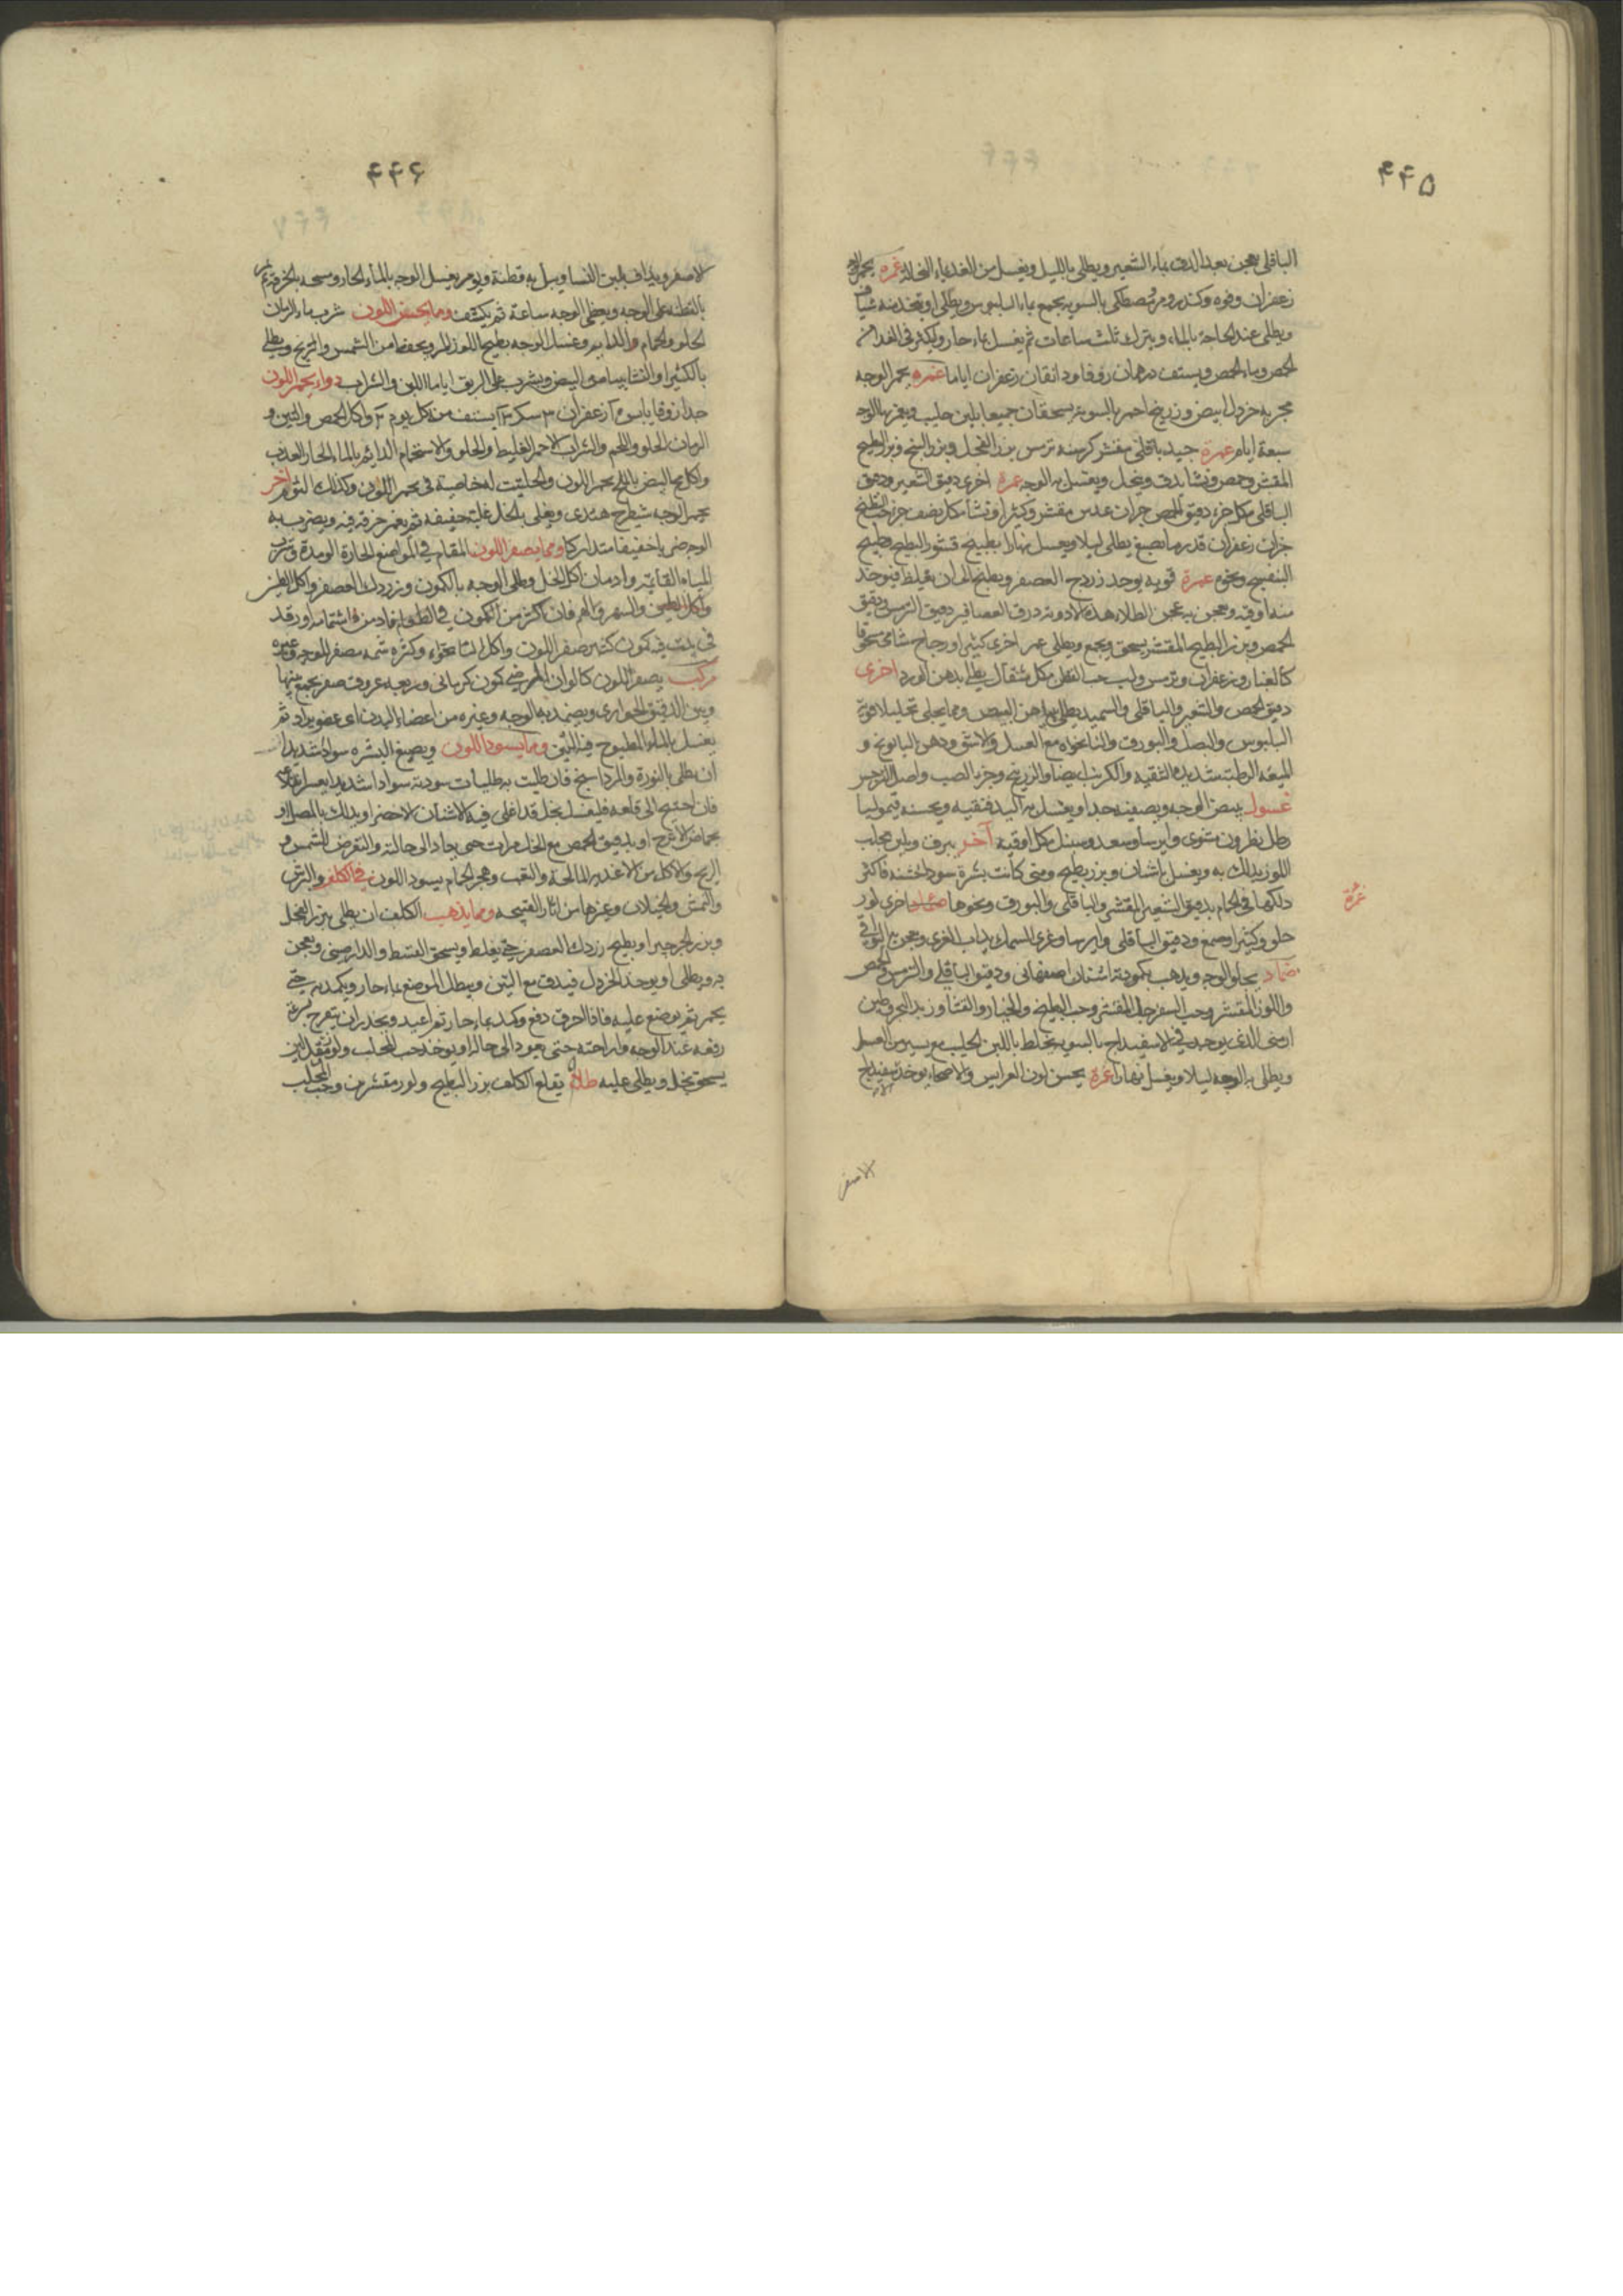 ۴۴۵
الباقلى يعجن بعد الدق بماء الشعير ويطلى بالليل ويغسل من الغد بماء النخالة غمرة يحمر الوجه
زعفران وفوه وكندر ومر ومصطكى بالسويه يجمع بماء البلبوس ويطلى او يتخذ منه شياف
ويطلى عند الحاجة بالماء ويترك ثلث ساعات ثم يغسل بماء حار ويكثر فى الغداء من
الحمص وماء الحمص ويستف درهمان زوفا ودانقان زعفران اياما غمره يحمر الوجه
مجربه خردل ابيض وزرنيخ احمر بالسويه يسحقان جميعا بلبن حليب ويغمر بها الوجه
سبعة ايام غمرة جيد باقلى مقشر كرسنه ترمس بزر الفجل وبزر البنج وبزر البطيخ
المقشر وحمص ونشا يدق وينخل ويغسل به الوجه غمرة اخرى دقيق الشعير ودقيق
الباقلى مكل جزء دقيق الحمص جزان عدس مقشر وكثيرا ونشا مكل نصف جزء حب البطيخ
جزان زعفران قدر ما يصبغ يطلى ليلا ويغسل نهارا بطبيخ قشور البطيخ وطبيخ
البنفسج ونحوه غمرة قويه يوخذ زردج العصفر ويطبخ الى ان يغلظ فيوخذ
منه اوقيه ويعجن به عجن الطلاء هذه الادوية ذرق العصافير دقيق الترمس ودقيق
الحمص وبزر البطيخ المقشر يسحق ويجمع ويطلى غمرة اخرى كثيرا وزجاج شامى مسحوقا
كالغبار وزعفران وترمس ولب حب القطن مكل مثقال يطلى بدهن الورد اخرى
دقيق الحمص والشعير والباقلى والسميد يطلى ببياض البيض ومما يجلى تحليلا قوية
البلبوس والبصل والبورق والنانخواه مع العسل والاشق ودهن البابونج و
الميعه الرطبة شديدة التنقيه والكرنب ايضا والزرنيخ وخرء الضب واصل النرجس
غسول يبيض الوجه ويصفيه جدا ويغسل به اليد فتنقيه ويحسنه قيموليا
رطل نطرون مشوى وايرسا وسعد وسنبل مكل اوقيه آخر يبرق وبلبن يحلب
اللوز يدلك به ويغسل باشنان وبزر بطيخ ومتى كانت بشرة سودا خشنه فاكثر
دلكها فى الحمام بدقيق الشعير المقشر والباقلى والبورق ونحوها ضماد اخرى لوز
غمرة
حلو وكثيرا وصمغ ودقيق الباقلى وايرسا وغرى السمك يذاب الغرى ويعجن به البواقى
ضماد يجلو الوجه ويذهب بكمودته اشنان اصفهانى ودقيق الباقلى والترمس والحمص
واللوز المقشر وحب السفرجل المقشر وحب البطيخ والخيار والقثا وزبد البحر وطين
ارمنى الذى يوجد فى الاسفيداج بالسويه يخلط باللبن الحليب مع يسير من العسل
ويطلى به الوجه ليلا ويغسل نهارا غمرة يحسن لون العرايس والاصحاء يوخذ اسفيداج
الاصفر
۴۴۶
الاصفر ويداف بلبن النسا ويبل به قطنة ويوم يغسل الوجه بالماء الحار ومسحه بالخرقة ثم
بالقطنه على الوجه ويغطى الوجه ساعة ثم يكشف ومما يحسن اللون شرب ماء الرمان
الحلو والحمام والتدابير وغسل الوجه بطبيخ اللوز المر ويحفظ من الشمس والريح ويطلى
بالكثيرا والنشا ببياض البيض ويشرب على الريق اياما اللبن والشراب دواء يحمر اللون
الرمان الحلو واللحم والشراب الاحمر الغليط والحلو والاستحمام الدايم بالماء الحار العذب
واكل مح البيض بالملح يحمر اللون والحلتيت له خاصية فى يحمر اللون وكذلك الثوم آخر
يحمر الوجه شيطرج هندى ويغلى بالخل غلية خفيفه ثم يغمر خرقه فيه ويضرب به
الوجه ضربا خفيفا متداركا ومما يصفر اللون المقام فى المواضع الحارة الومدة وشرب
المياه القائمة وادمان اكل الخل وطلى الوجه بالكمون وبزر دلك العصفر واكل الطين
واكل الطين والسهر والغم فان اكثر من الكمون فى الطعام او ادمن اشتمامه او رقد
فى بيت فيه كمون كثير صفر اللون واكل النانخواه وكثره شمه مصفر للوجه وغيره
مركب يصفر اللون كالوان المرضى كمون كرمانى وربعه عروق صفر يجمع بينها
وبين الدقيق الحوارى ويضمد به الوجه وغيره من اعضاء البدن اى عضو يراد ثم
يغسل بالماء المطبوخ فيه التين ومما يسود اللون ويصبغ البشره سوادا شديدا
ان يطلى بالنورة والمرداسنج فان طليت به طليات سودته سوادا شديدا يعسر قلعه
فان احتيج الى قلعه فليغسل بخل قد اغلى فيه الاشنان الاخضر او يدلك بالبصل او
بحماض الاترج او بدقيق الحمص مع الخل مرات حتى يعاد الى حالته والتعرض للشمس و
الريح والاكل من الاغذيه المالحة والتعب وهجر الحمام يسود اللون فى الكلف والبرش
والنمش والخيلان وغيرها من اثار القبيحه ومما يذهب الكلف ان يطلى ببزر الفجل
وبزر الجرجير او بطبيخ زردك العصفر حتى يغلظ ويسحق القسط والدارصينى ويعجن
به ويطلى او يوخذ الخردل فيدق مع التين ويبطل الموضع بماء حار ويكمد به حتى
يحمر ثم يوضع عليه فاذا احرق دفع وكمد بماء حار ثم اعيد ويحذر ان يتقرح
رفعه عند الوجه واراحته حتى يعود الى حاله او يوخذ حب المحلب ولوز مقشرين
يسحق بخل ويطلى عليه طلاء يقلع الكلف بزر البطيخ ولوز مقشر من وحب المحلب